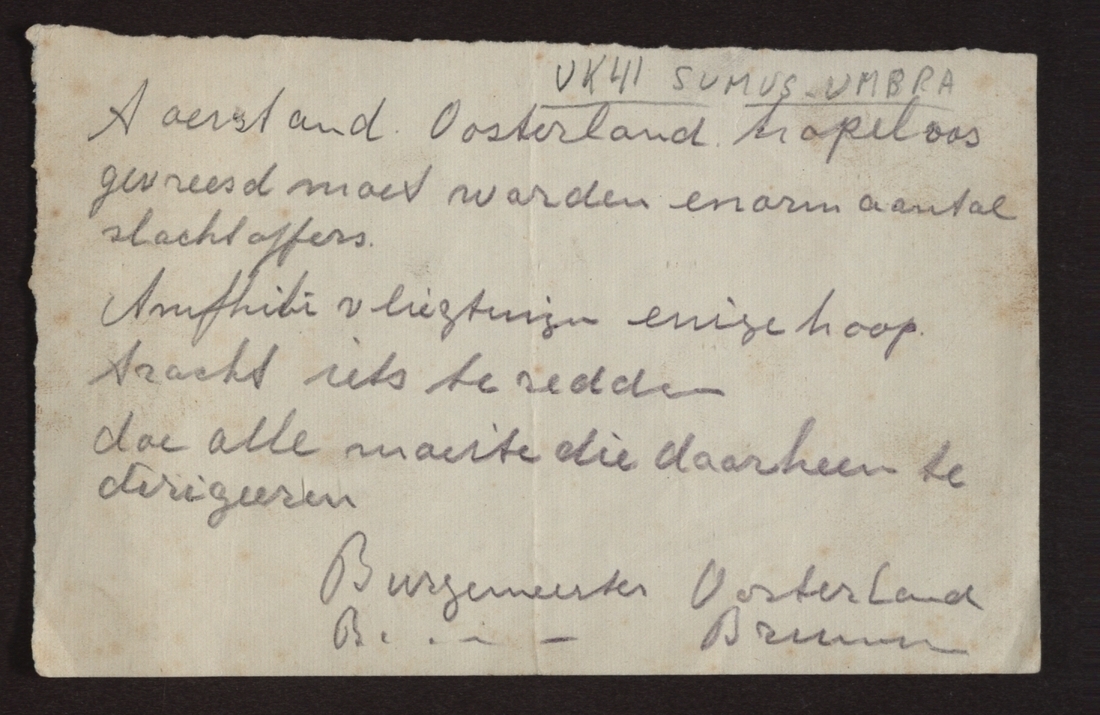 VK41 SUMUS UMBRA
Oosterland. hopeloos
gevreesd moet worden enorm aantal
slachtoffers.
Amfhibi vliegtuigen enige hoop.
tracht iets te redden
doe alle moeite die daarheen te
dirigeeren
Burgemeester Oosterland
B.